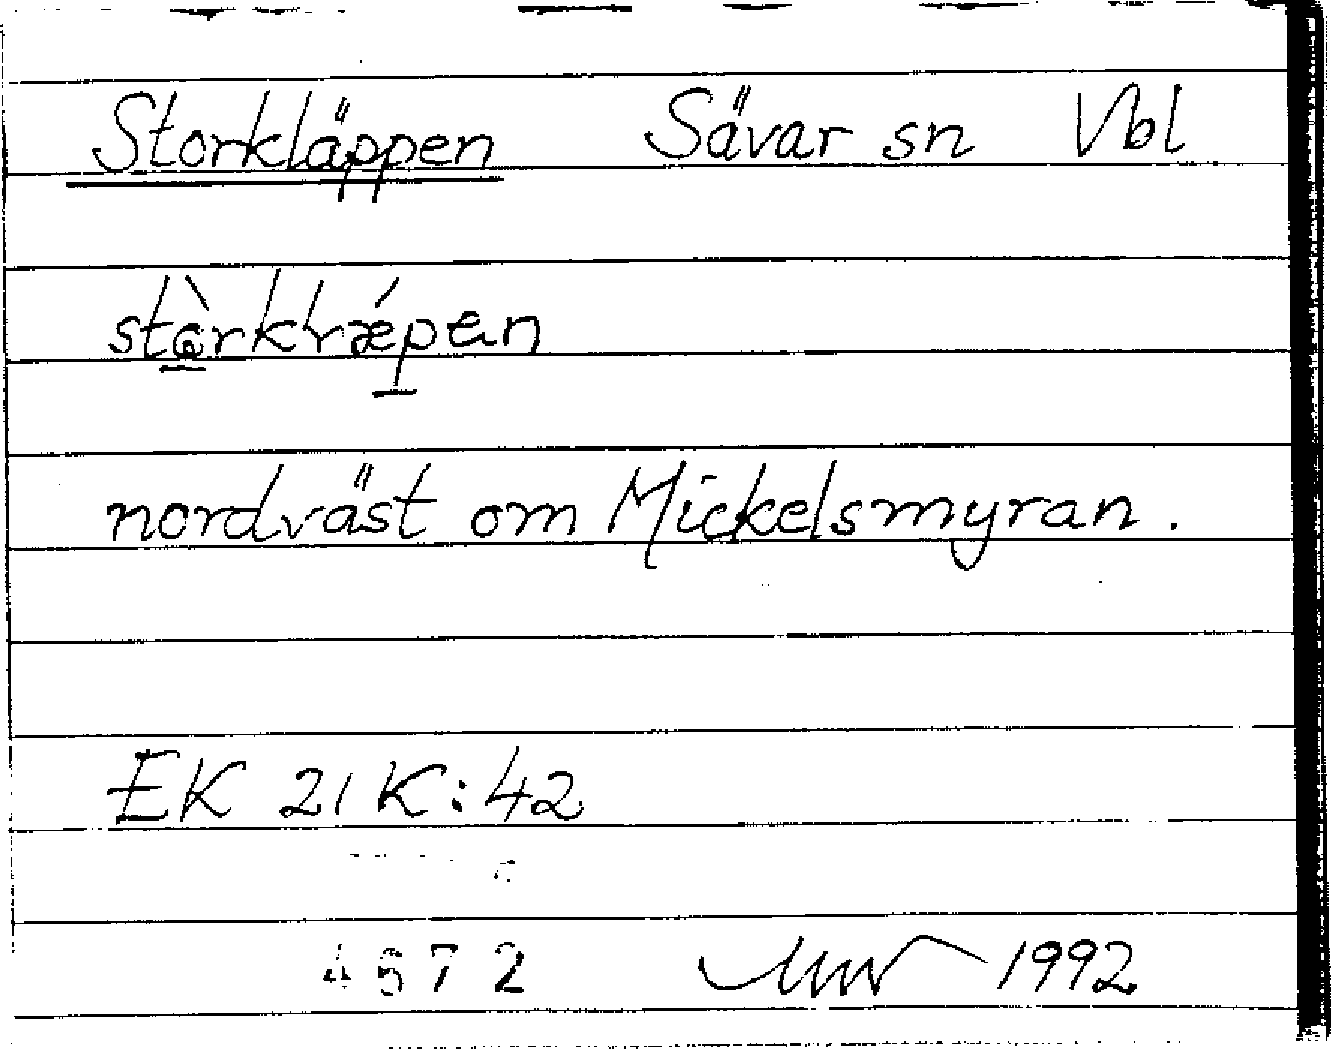 Storkläppen Sävar sn Vbl
nordväst om Mickelsmyran.
EK 21 K:42
4672 1992